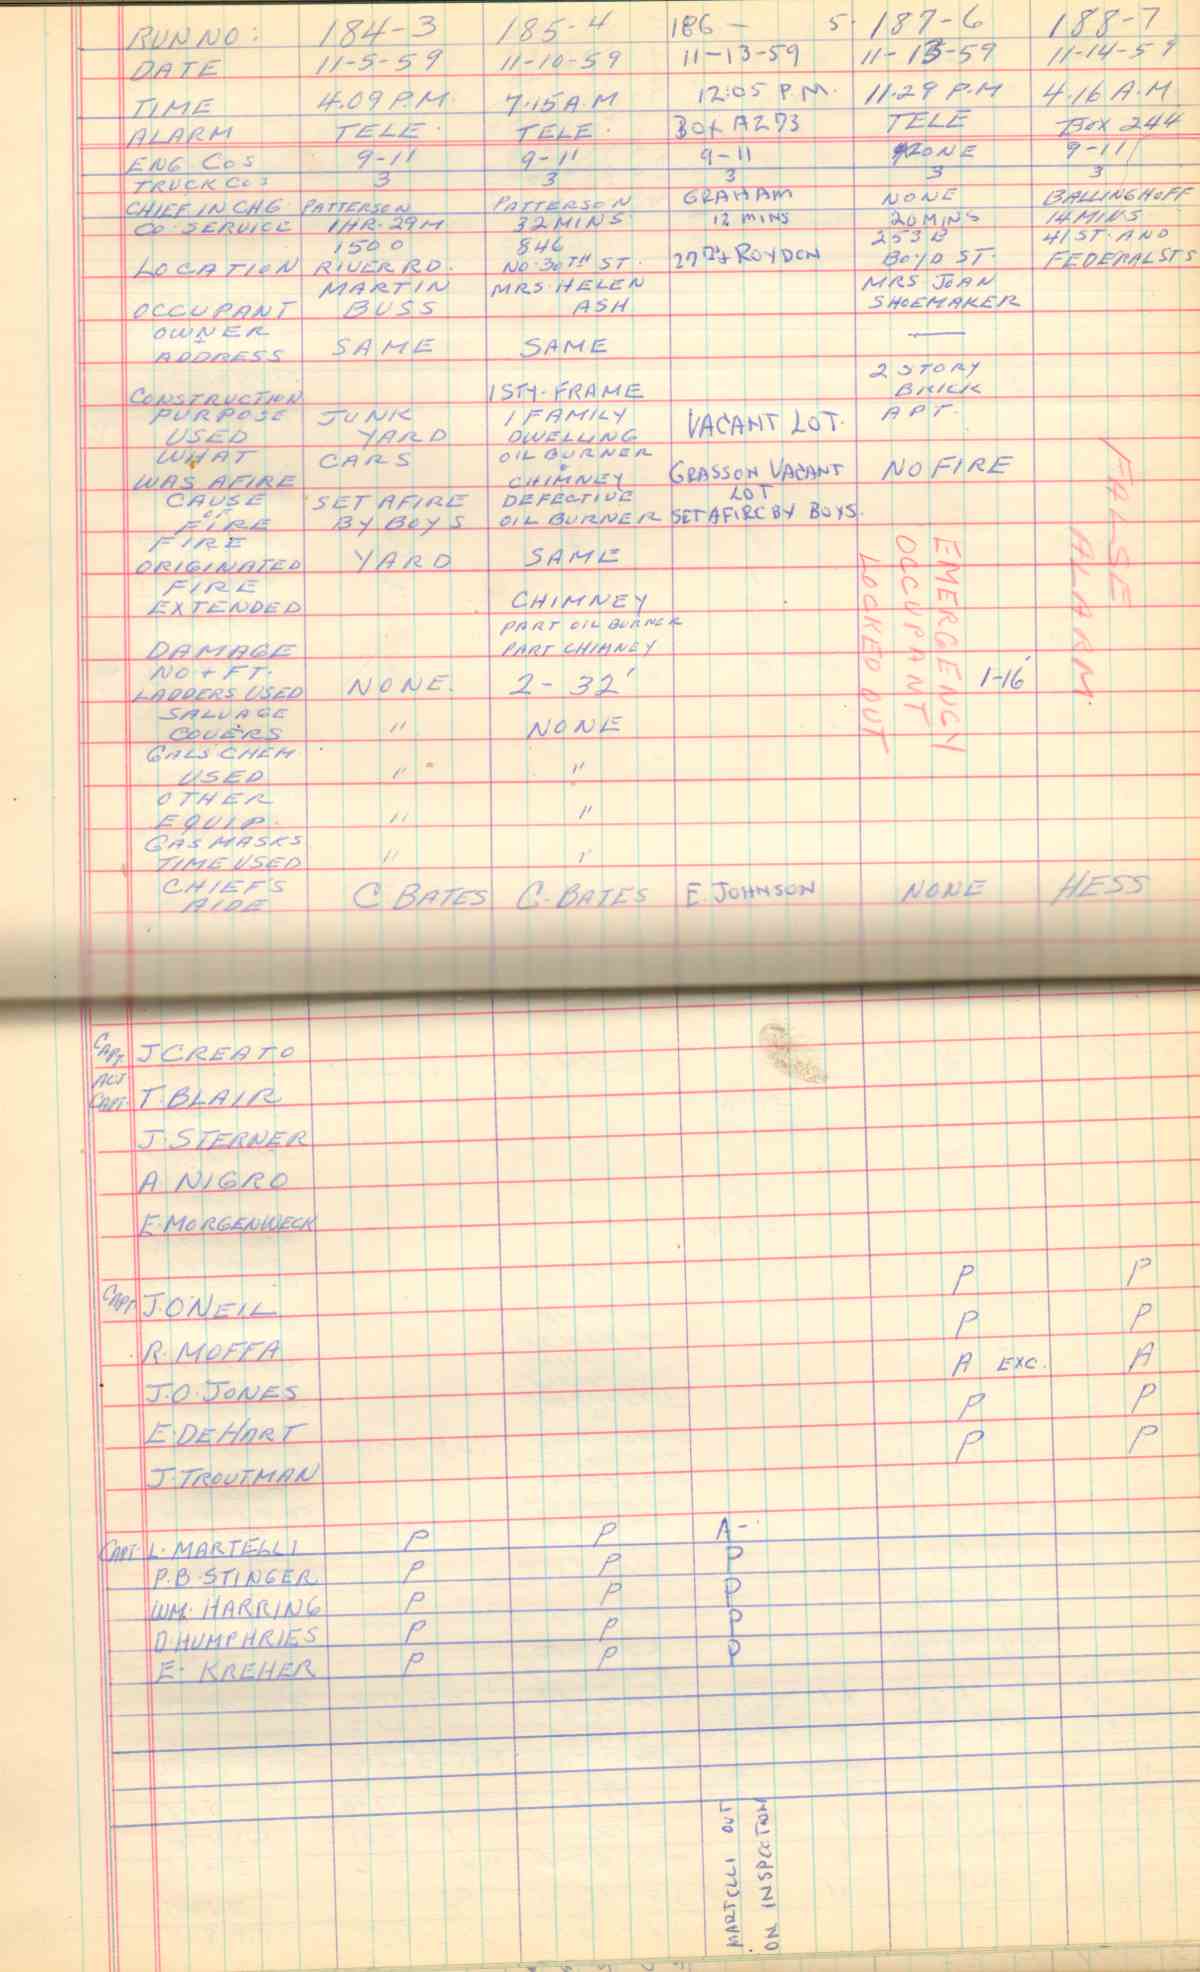 RUN NO: 184-3 185-4 186- 5 187-6 188-7
DATE 11-5-59 11-10-59 11-13-59 11-13-59 11-14-59
TIME 4.09 P.M. 7.15 A.M 12:05 P.M. 11.29 P.M 4.16 A.M
ALARM TELE. TELE. BOX A273 TELE BOX 244
ENG COS 9-11 9-11 9-11 NONE 9-11
TRUCK COS 3 3 3 3 3
CHIEF IN CHG PATTERSON PATTERSON GRAHAM NONE BALLINGHOFF
CO. SERVICE 1 HR. 29 M 32 MINS 12 MINS 20 MINS 14 MINS
1500 846 253 B 41ST. AND
LOCATION RIVER RD. NO. 30TH ST. 27TH + ROYDON BOYD ST. FEDERAL STS
MARTIN MRS. HELEN MRS JOAN
OCCUPANT BUSS ASH SHOEMAKER
OWNER
ADDRESS SAME SAME —
2 STORY
CONSTRUCTION 1 STY. FRAME BRICK
PURPOSE JUNK 1 FAMILY VACANT LOT. APT.
USED YARD DWELLING
WHAT CARS OIL BURNER
WAS AFIRE CHIMNEY GRASS ON VACANT NO FIRE
CAUSE SET AFIRE DEFECTIVE LOT
OF
FIRE BY BOYS OIL BURNER SET AFIRE BY BOYS.
FIRE
ORIGINATED YARD SAME
FIRE
EXTENDED CHIMNEY
PART OIL BURNER
DAMAGE PART CHIMNEY
NO + FT.
LADDERS USED NONE. 2- 32' 1-16'
SALVAGE
COVERS " NONE
GALS CHEM
USED " "
OTHER
EQUIP. " "
GAS MASKS
TIME USED " "
CHIEF'S
AIDE C BATES C. BATES E. JOHNSON NONE HESS
EMERGENGY
OCCUPANT
LOCKED OUT
FALSE
ALARM.
CAPT. J CREATO
ACT.
CAPT. T. BLAIR
J. STERNER
A NIGRO
E. MORGENWECK
P P
CAPT J. O'NEIL
P P
R. MOFFA
A EXC. A
J. O. JONES
P P
E. DEHART
P P
J. TROUTMAN
CAPT. L. MARTELLI P P A-
P. B. STINGER P P P
WM. HARRING P P P
D. HUMPHRIES P P P
E. KREHER P P P
MARTELLI OUT
ON INSPECTION